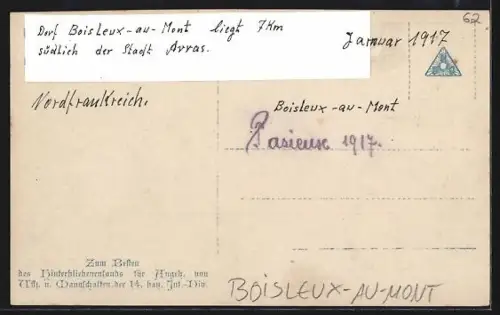 Dorf Boisleux-au-Mont liegt 7Km
südlich der Stadt Arras.
62
Januar 1917
Nordfrankreich.
Boisleux-au-Mont
1917.
Zum Besten
des Hinterbliebenenfonds für Angeh. von
Uffz. u. Mannschaften der 14. bay. Inf.-Div.
BOISLEUX-AU-MONT